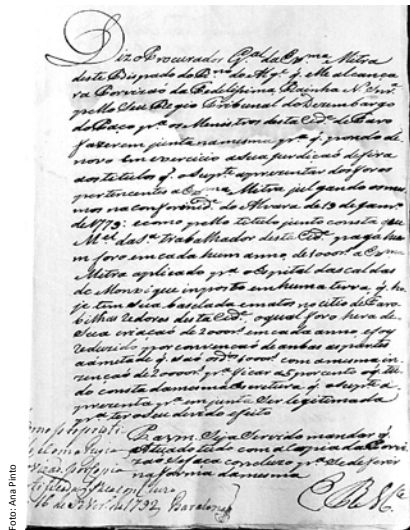 Diz o Procurador G.al da Ex.ma Mitra
deste Bispado do R.no do Alg.e q. elle alcança
ra Provizaõ da Fedelissima Rainha N. Snr.ª
pello Seu Regio Tribunal do Dezembargo
do Paco p.ª os Ministros desta Cid.e de Faro
fazerem junta na mesma p.ª q. pondo de
novo em exercicio a Sua jurdicaõ defira
aos titulos q. o Sup.te aprezentar dos foros
pertencentes a Ex.ma Mitra julgando os mes
mos na conformid.e do Alvara de 13 de Janr.o
de 1773: e como pello titulo junto consta que
M.el da S.ª trabalhador desta Cid.e paga hu
m foro em cada hum anno, de 1000 r.s a Ex.ma
Mitra aplicado p.ª o Ospital das Caldas
de Monxique imposto em huma terra q. ho
je tem Sua baselada em atos no citio de
redores desta Cid.e o qual foro hera de
Sua criaçaõ de 2000 r.s em cada anno, e foy
reduzido por convençaõ de ambas as partes
a metade q. saõ 1000 r.s com a mesma in
tençaõ de 20000 r.s p.ª ficar a 5 por cento q. tu
do consta da mesma Escretura q. o Sup.te a
prezenta p.ª em junta Ser legitimada
p.ª ter o Seu devido efeito
P. a V. M. Seja Servido mandar q.
Atuado tudo com a Copia da Provi
zaõ Se faca concluzo p.ª Se deferir
na forma da mesma
E R M.ce
16 de 1792
Foto: Ana Pinto